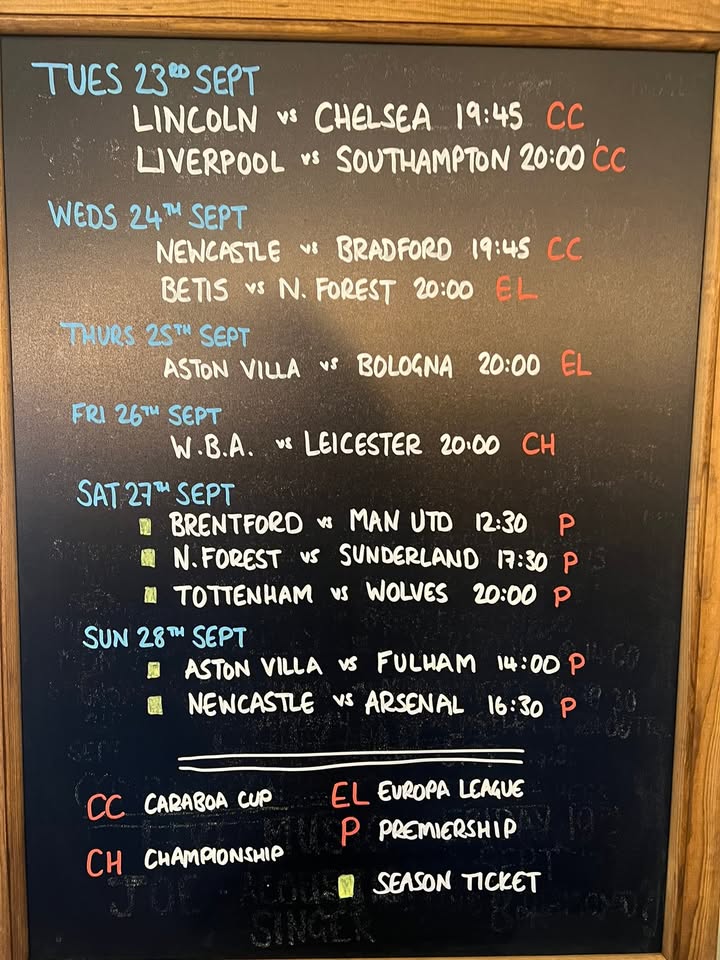 TUES 23RD SEPT
LINCOLN vs CHELSEA 19:45 CC
LIVERPOOL vs SOUTHAMPTON 20:00 CC
WEDS 24TH SEPT
NEWCASTLE vs BRADFORD 19:45 CC
BETIS vs N. FOREST 20:00 EL
THURS 25TH SEPT
ASTON VILLA vs BOLOGNA 20:00 EL
FRI 26TH SEPT
W.B.A. vs LEICESTER 20:00 CH
SAT 27TH SEPT
BRENTFORD vs MAN UTD 12:30 P
N.FOREST vs SUNDERLAND 17:30 P
TOTTENHAM vs WOLVES 20:00 P
SUN 28TH SEPT
ASTON VILLA vs FULHAM 14:00 P
NEWCASTLE vs ARSENAL 16:30 P
CC CARABOA CUP
EL EUROPA LEAGUE
P PREMIERSHIP
CH CHAMPIONSHIP
SEASON TICKET
JOE
SINGER